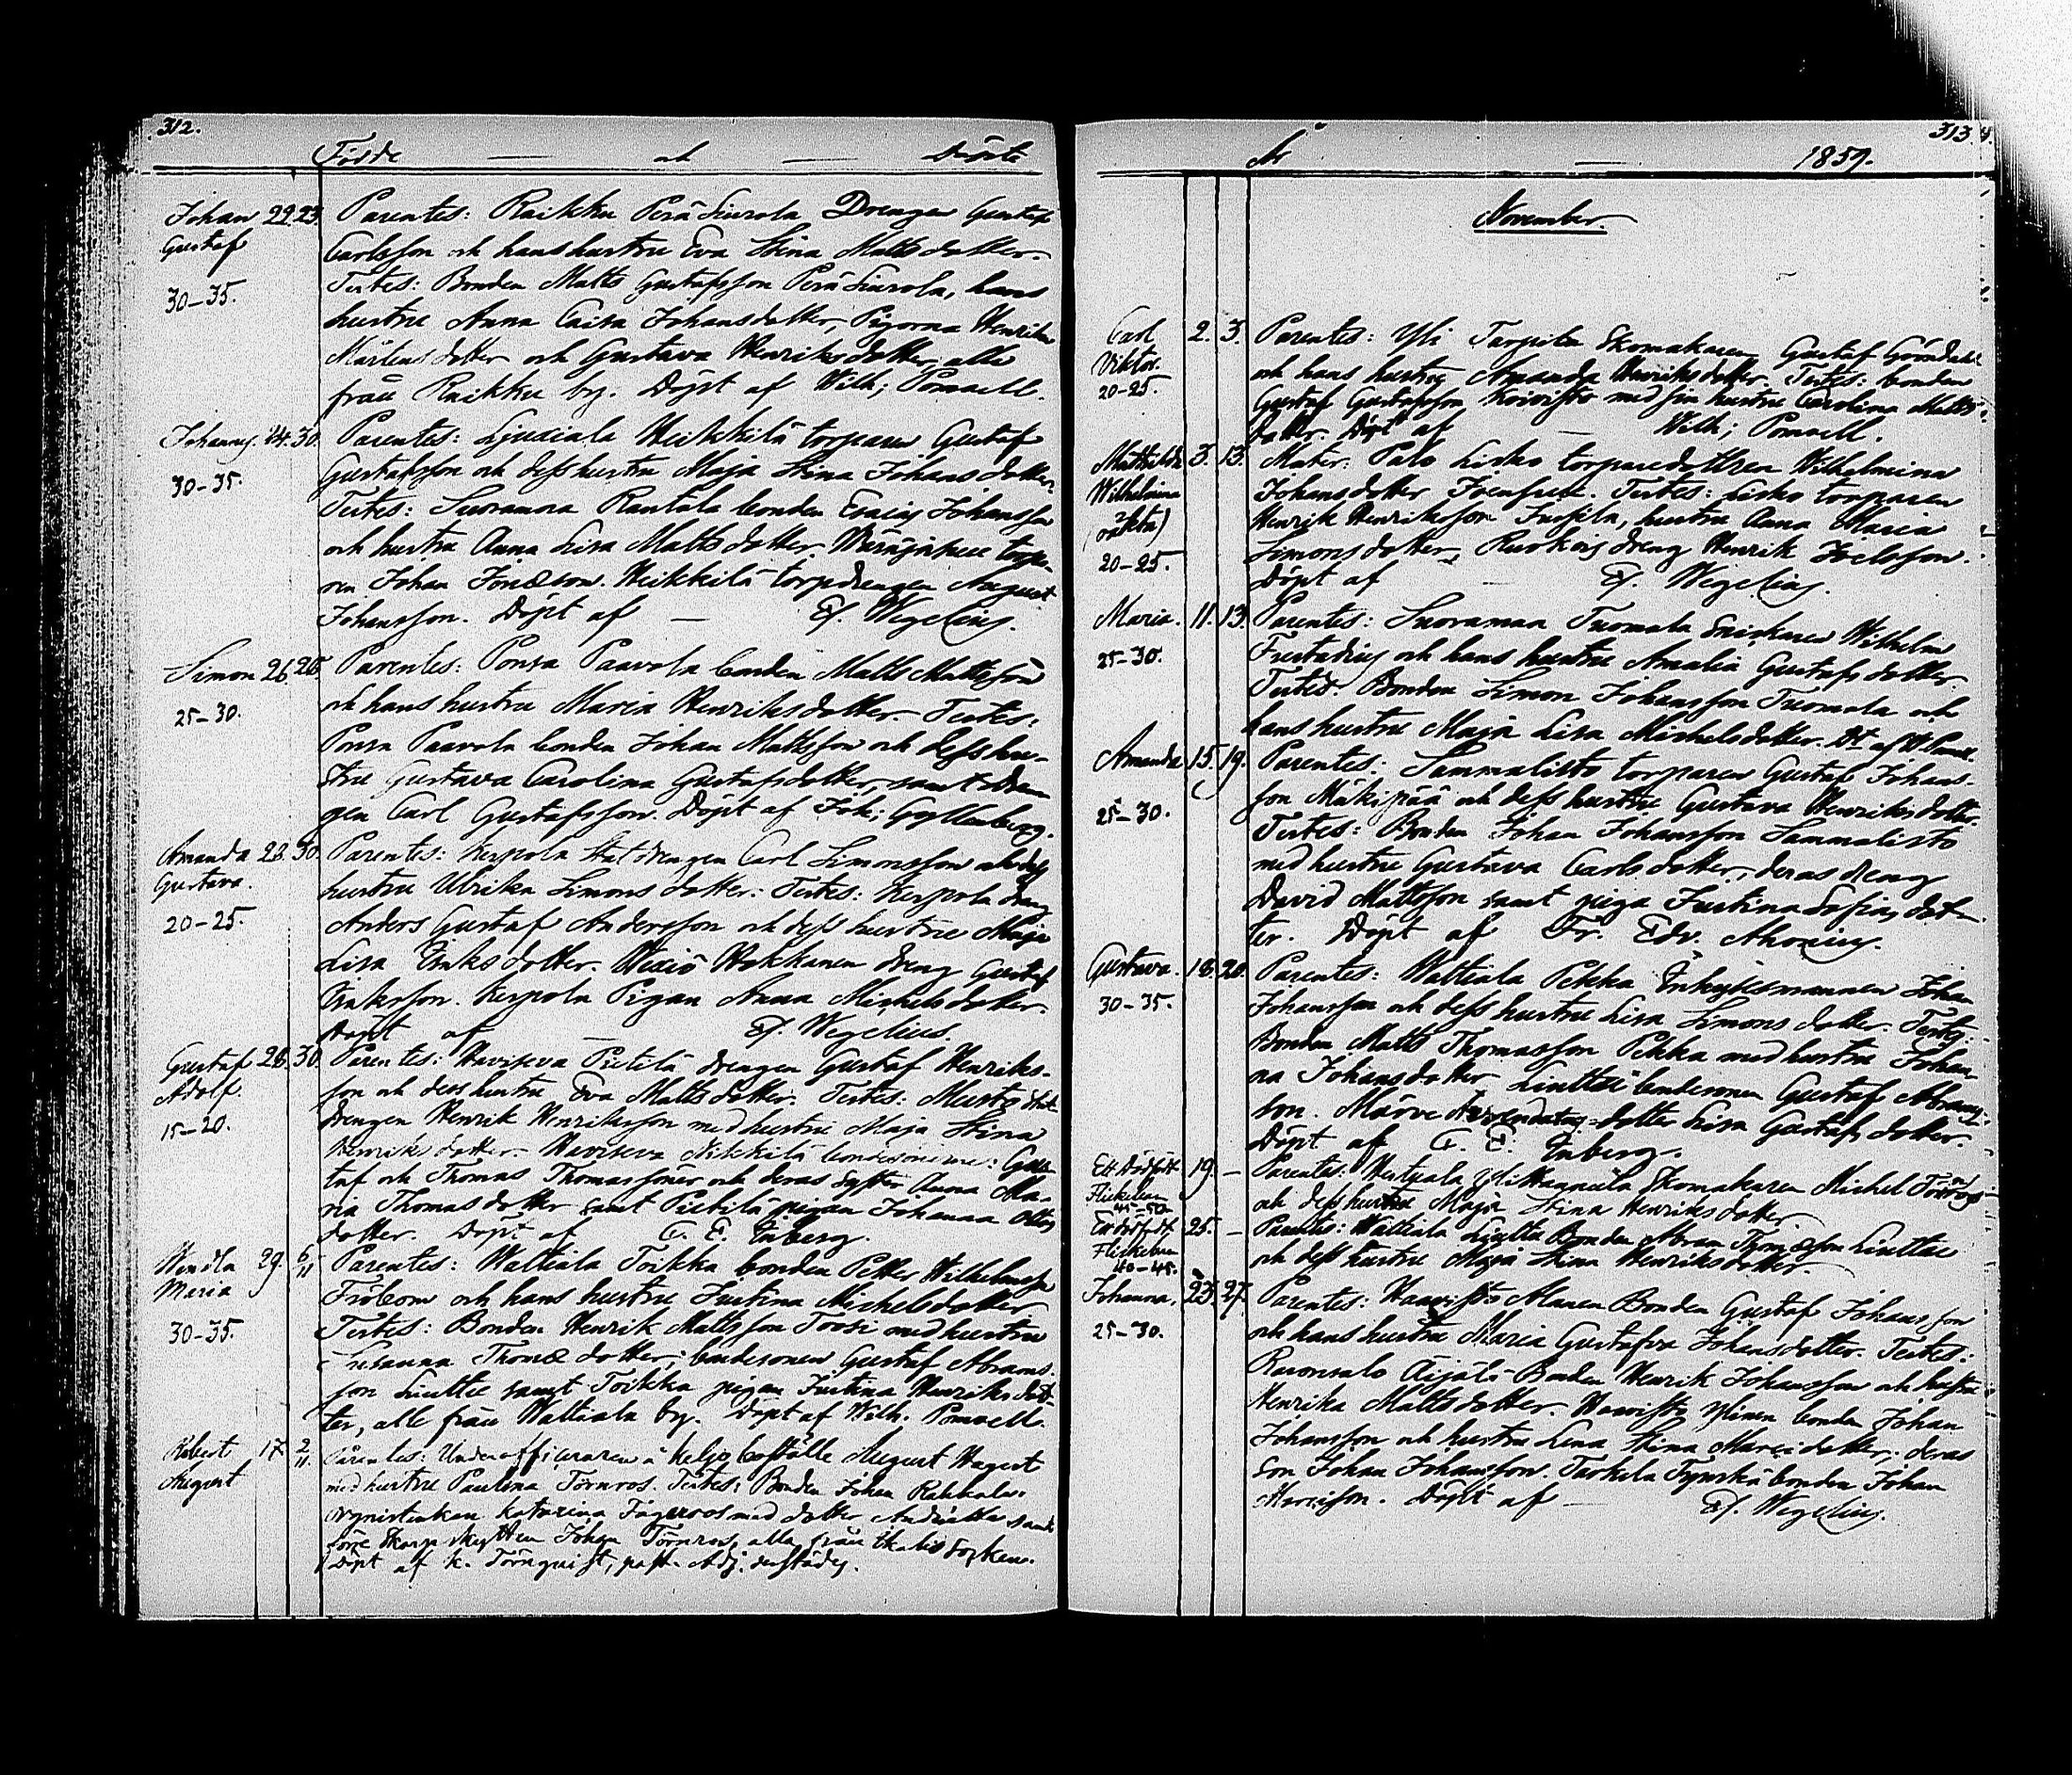 312.
Födde — och — Döpte
Johan 22. 23. Parentes: Raikku Perä Siurola Drengen Gustaf
Gustaf Carlsson och hans hustru Eva Stina Matts dotter.
30-35. Testes: Bonden Matts Gustafsson Perä Siurola, hans
hustru Anna Caisa Johansdotter, Pigorna Henrika
Mårtens dotter och Gustava Henriksdotter, alla
från Raikku by. Döpt af Wilh; Pomoell.
Johannes. 24. 30. Parentes: Ljuxiala Heikkilä torparen Gustaf
30-35. Gustafsson och dess hustru Maja Stina Johans dotter.
Testes: Suorama Rantala bonden Esaias Johansson
och hustru Anna Lisa Matts dotter. torpa-
ren Johan Jonæson. Heikkilä torpdrengen August
Johansson. Döpt af — Ef. Wegelius.
Simon 26. 26. Parentes: Ponsa Paavola bonden Matts Mattsson
25-30. och hans hustru Maria Henriksdotter. Testes:
Ponsa Paavola bonden Johan Mattsson och dess hu-
stru Gustava Carolina Gustafsdotter, samt dren
gen Carl Gustafsson. Döpt af Joh; Gyllenberg.
Amanda 23. 30. Parentes: Kerpola Statdrengen Carl Simonsson och dess
Gustava. hustru Ulrika Simons dotter. Testes: Kerpola dreng
20-25. Anders Gustaf Andersson och dess hustru Maja
Lisa Eriks dotter. Wokkanen dreng Gustaf
Eriksson. Kerpola Pigan Anna Michelsdotter.
Döpt af — Ef. Wegelius.
Gustaf 26. 30. Parentes: Haviseva Pietilä drengen Gustaf Henriks-
Adolf. son och dess hustru Eva Matts dotter. Testes: Musto
15-20. drengen Henrik Henriksson med hustru Maja Stina
Henriks dotter. Haviseva Nikkilä bondesönerne: Gus
taf och Thomas Thomassöner och deras syster Anna Ma-
ria Thomas dotter samt Pietilä pigan Johanna Ottos
dotter. Döpt af G. E. Enberg.
Wendla 29. 6/11 Parentes: Waltiala Toikka bonden Petter Wilhelmsson
Maria Fröbom och hans hustru Justina Michelsdotter
30-35. Testes: Bonden Henrik Mattsson Toosi med hustru
Susanna Thomæ dotter; bondesonen Gustaf Abrams
son Liuttu samt Toikka pigan Justina Henriks dot-
ter, alle från Waltiala by. Döpt af Wilh. Pomoell.
Robert 17. 2/11. Parentes: Underofficeraren å Keljo boställe August Wagert
August med hustru Paulina Törnroos. Testes: Bonden Johan Rahkala.
Katarina Fägerroos med dotter samt
Johan Törnroos, alla från Ikalis Socken.
Döpt af K. Törnquist, past. Adj. derstädes.
313.
År — 1859.
November.
Carl 2. 3. Parentes: Yli Tarpila Skomakaren Gustaf Gröndahl
Viktor. och hans hustru Amanda Henriksdotter. Testes: bonden
20-25. Gustaf Gustafsson Koivisto med sin hustru Carolina Matts
dotter. Döpt af — Wilh; Pomoell.
Mathilda 3. 13. Mater: Palo Lisko torparedottren Wilhelmina
Wilhelmina Johansdotter Joenpelt. Testes: Lisko torparen
(oäkta) Henrik Henriksson Juspila, hustru Anna Maria
20-25. Simonsdotter, dreng Henrik Joelsson.
Döpt af — Ef. Wegelius.
Maria. 11. 13. Parentes: Suoramaa Tuomala Snickaren Wilhelm
25-30. Frestadius och hans hustru Amalia Gustafs dotter
Testes. Bonden Simon Johansson Tuomala och
hans hustru Maja Lisa Michelsdotter. Dt af W. Pomll.
Amanda 15. 19. Parentes: Sammalisto torparen Gustaf Johans-
25-30. son Mäkipää och dess hustru Gustava Henriksdotter.
Testes: Bonden Johan Johansson Sammalisto
med hustru Gustava Carlsdotter, deras dreng
David Mattsson samt piga Justina Sofias dot-
ter. Döpt af Fr. Edv. Ahonius.
Gustava. 18. 20. Parentes: Waltiala Pekka Enhytesmannen Johan
30-35. Johansson och dess hustru Lisa Simons dotter. Testes.
Bonden Matts Thomasson Pekka med hustru Johan-
na Johansdotter, Liuttu bondesonen Gustaf Abrams-
son. Arrendators dotter Lisa Gustafs dotter.
Döpt af G. E. Enberg.
Ett Dödfödt 19. — Parentes: Skomakaren Michel Törnroos
Flickebarn och dess hustru Maja Stina Henriksdotter.
45-50.
Ett dödfödt 25. — Parentes: Waltiala Liuttu Bonden Abram Thomæsson Liuttu
Flickebarn och dess hustru Maja Stina Henriksdotter.
40-45.
Johanna. 23. 27. Parentes: Haavisto Alanen Bonden Gustaf Johansson
25-30. och hans hustru Maria Gustafva Johansdotter. Testes:
Äijälä Bonden Henrik Johansson och hustru
Henrika Mattsdotter. Haavisto Ylinen bonden Johan
Johansson och hustru Lena Stina Marci dotter; deras
Son Johan Johansson. Taskela Tynskä bonden Johan
Marcisson. Döpt af — Ef. Wegelius.